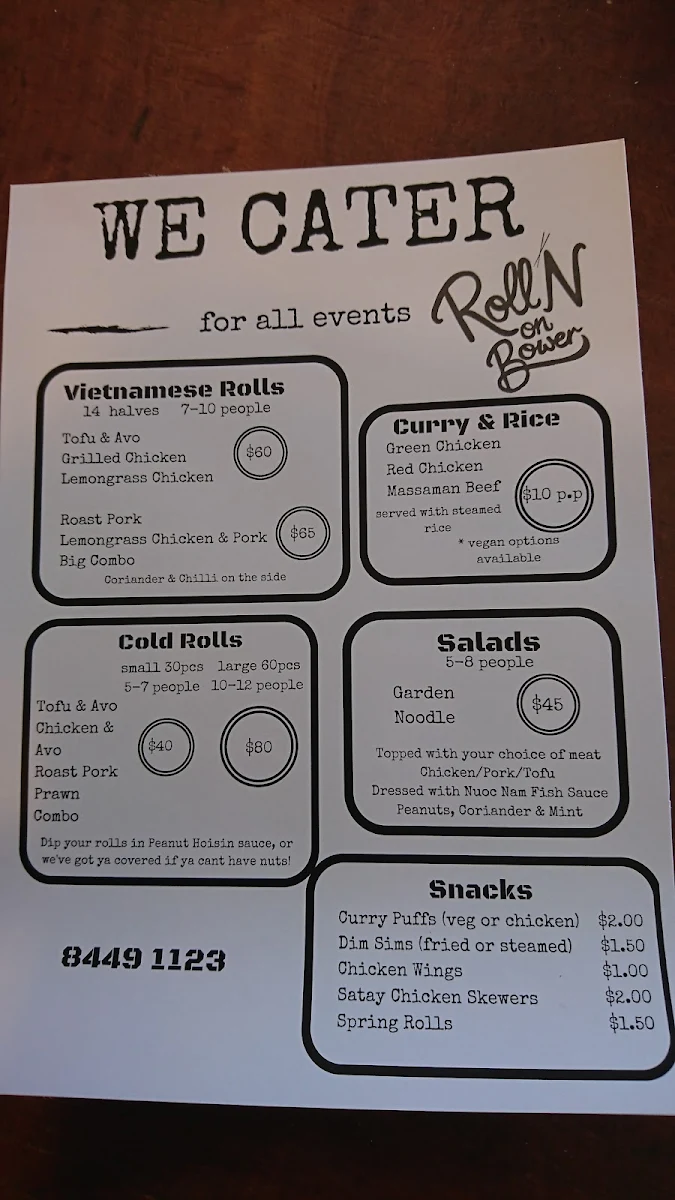 WE CATER
for all events
Roll'N
on
Bower
Vietnamese Rolls
14 halves 7-10 people
Tofu & Avo
Grilled Chicken
Lemongrass Chicken
$60
Roast Pork
Lemongrass Chicken & Pork
Big Combo
$65
Coriander & Chilli on the side
Curry & Rice
Green Chicken
Red Chicken
Massaman Beef
$10 p.p
served with steamed
rice
* vegan options
available
Cold Rolls
small 30pcs large 60pcs
5-7 people 10-12 people
Tofu & Avo
Chicken &
Avo
Roast Pork
Prawn
Combo
$40
$80
Dip your rolls in Peanut Hoisin sauce, or
we've got ya covered if ya cant have nuts!
Salads
5-8 people
Garden
Noodle
$45
Topped with your choice of meat
Chicken/Pork/Tofu
Dressed with Nuoc Nam Fish Sauce
Peanuts, Coriander & Mint
Snacks
Curry Puffs (veg or chicken) $2.00
Dim Sims (fried or steamed) $1.50
Chicken Wings $1.00
Satay Chicken Skewers $2.00
Spring Rolls $1.50
8449 1123